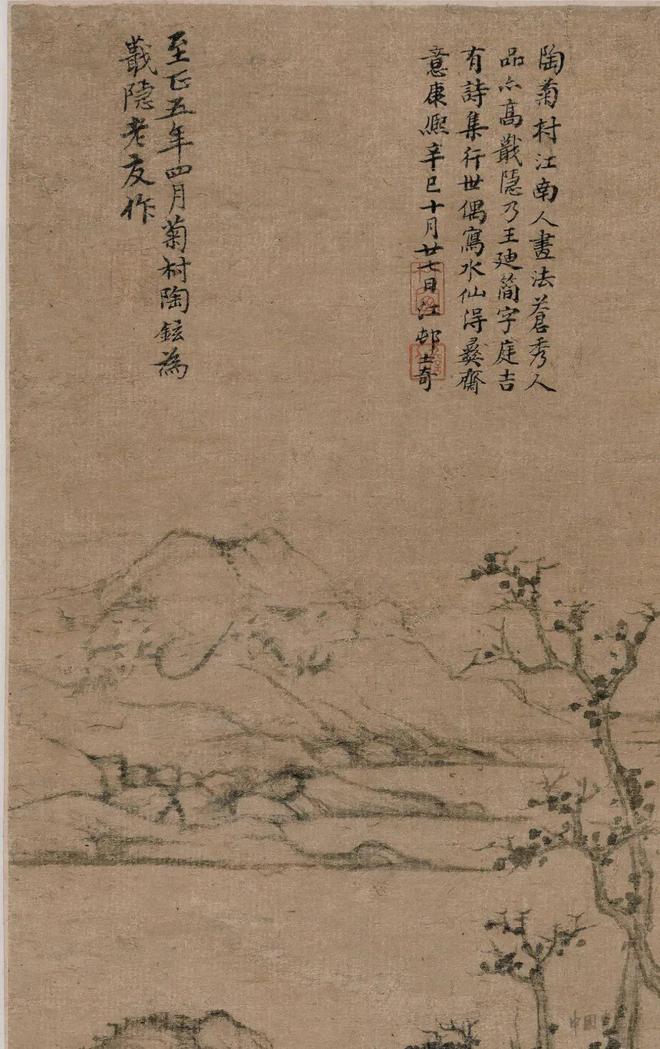 陶菊村江南人畫法蒼秀人
品亦高戴隱乃王廸簡字庭吉
有詩集行世偶寫水仙得彝齋
意康熙辛巳十月廿七日江邨士奇
至正五年四月菊村陶鉉為
戴隱老友作
中国